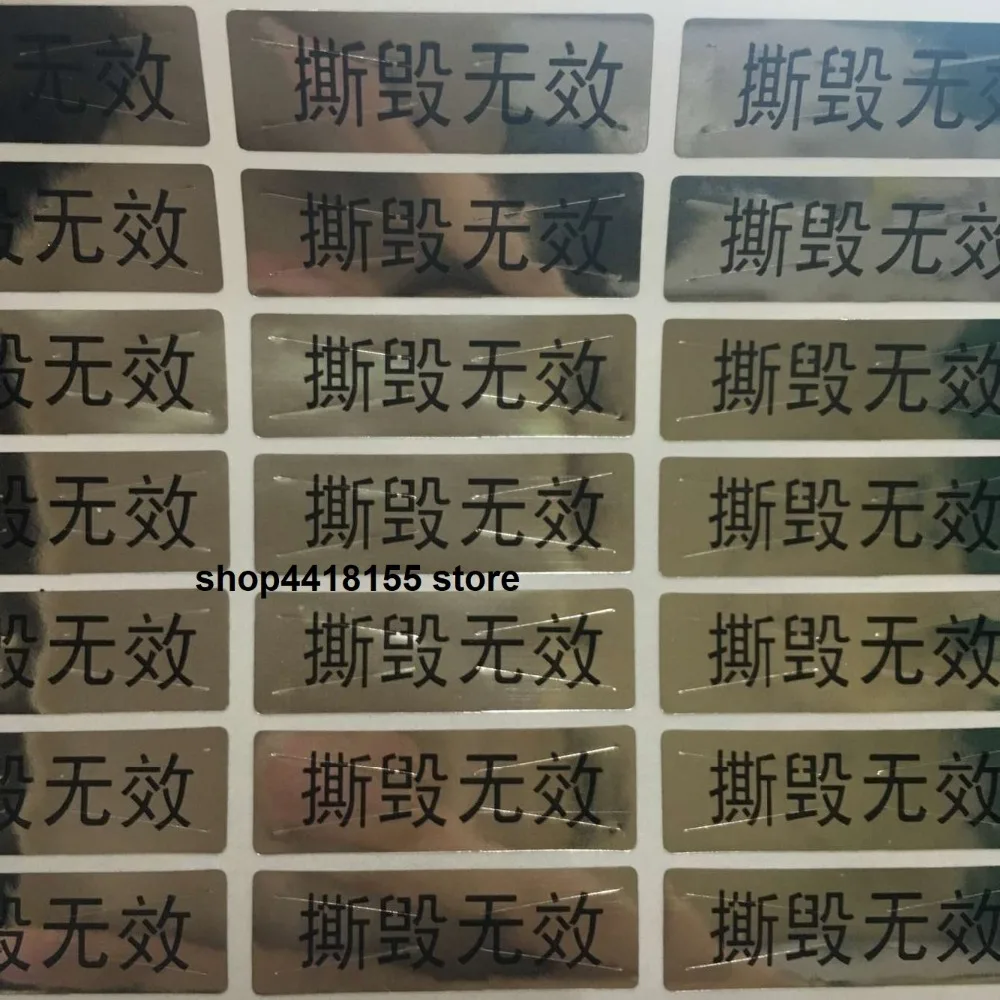 无效 撕毁无效 撕毁无
毁无效 撕毁无效 撕毁无效
毁无效 撕毁无效 撕毁无效
毁无效 撕毁无效 撕毁无效
shop4418155 store
毁无效 撕毁无效 撕毁无效
毁无效 撕毁无效 撕毁无效
毁无效 撕毁无效 撕毁无效